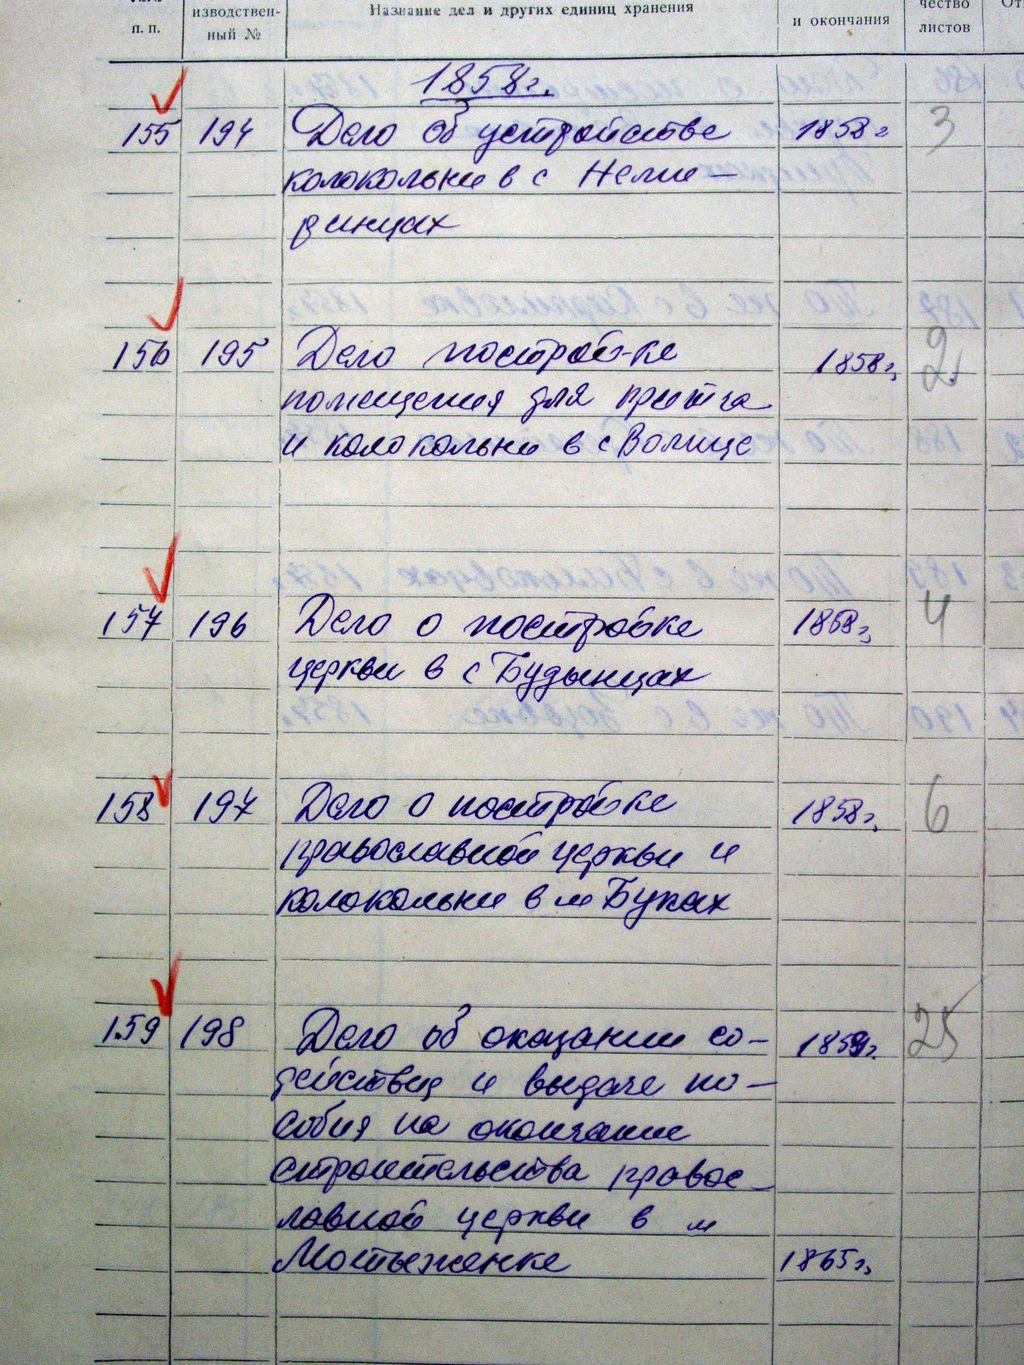 изводствен- Название дел и других единиц хранения чество
п. п. ный № и окончания листов
1858г.
155 194 Дело об устройстве 1858г 3
колокольни в с Неме-
ринцах
156 195 Дело постройке 1858г. 2
помещения для притча
и колокольни в с Волице
157 196 Дело о постройке 1858г. 4
церкви в с Будынцах
158 197 Дело о постройке 1858г. 6
православной церкви и
колокольни в м Буках
159 198 Дело об оказании со- 1859г. 25
действия и выдаче по-
собия на окончание
строительства правос-
лавной церкви в м
1865г.